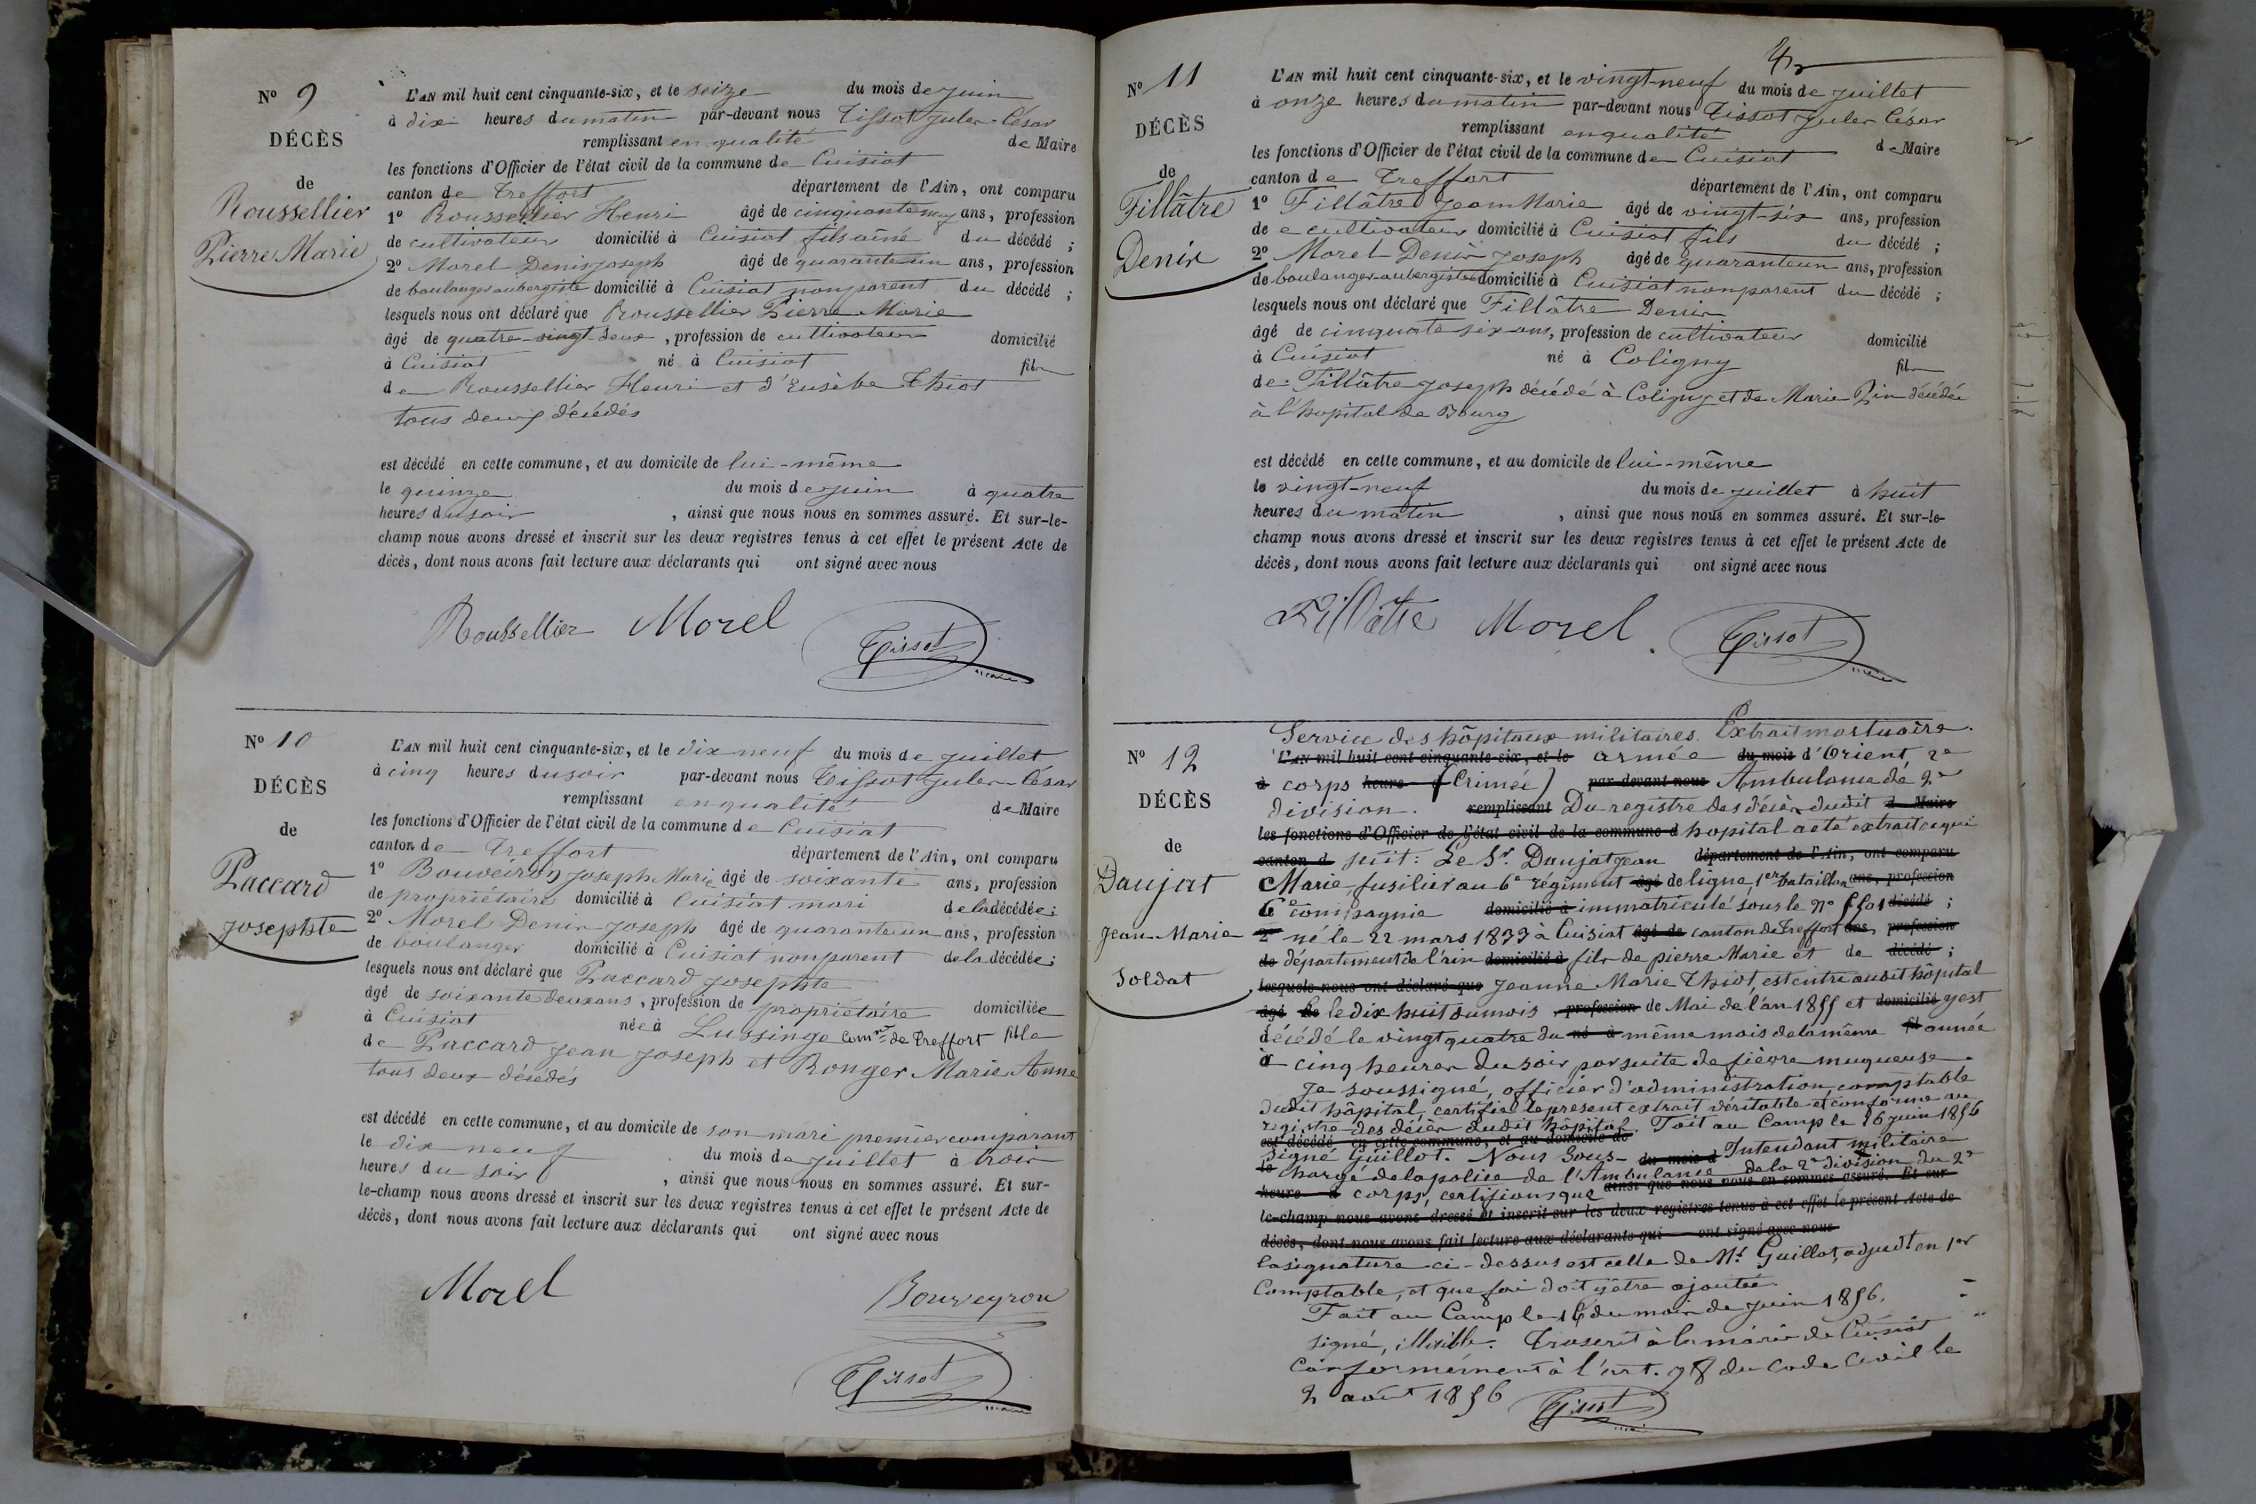 N° 9
DÉCÈS
de
Roussellier
Pierre Marie
L'AN mil huit cent cinquante-six, et le seize du mois de juin
à dix heures du matin par-devant nous Tissot Jules-César
remplissant en qualité de Maire
les fonctions d'Officier de l'état civil de la commune de Cuisiat
canton de Treffort département de l'Ain, ont comparu
1° Roussellier Henri âgé de cinquante neuf ans, profession
de cultivateur domicilié à Cuisiat fils aîné du décédé ;
2° Morel Denis Joseph âgé de quarante un ans, profession
de boulanger aubergiste domicilié à Cuisiat non parent du décédé ;
lesquels nous ont déclaré que Roussellier Pierre Marie
âgé de quatre-vingt-deux , profession de cultivateur domicilié
à Cuisiat né à Cuisiat fils
de Roussellier Henri et d'Eusèbe Thiot
tous deux décédés
est décédé en cette commune, et au domicile de lui-même
le quinze du mois de juin à quatre
heures du soir , ainsi que nous nous en sommes assuré. Et sur-le-
champ nous avons dressé et inscrit sur les deux registres tenus à cet effet le présent Acte de
décès, dont nous avons fait lecture aux déclarants qui ont signé avec nous
Roussellier Morel Tissot
maire
N° 10
DÉCÈS
de
Paccard
Josephte
L'AN mil huit cent cinquante-six, et le dix neuf du mois de juillet
à cinq heures du soir par-devant nous Tissot Jules-César
remplissant en qualité de Maire
les fonctions d'Officier de l'état civil de la commune de Cuisiat
canton de Treffort département de l'Ain, ont comparu
1° Bouveiron Joseph Marie âgé de soixante ans, profession
de propriétaire domicilié à Cuisiat mari de la décédée ;
2° Morel Denis Joseph âgé de quarante un ans, profession
de boulanger domicilié à Cuisiat non parent de la décédée ;
lesquels nous ont déclaré que Paccard Josephte
âgé de soixante deux ans , profession de propriétaire domiciliée
à Cuisiat née à Lussinge comne de Treffort fille
de Paccard Jean Joseph et Ronger Marie Anne
tous deux décédés
est décédé en cette commune, et au domicile de son mari premier comparant
le dix neuf du mois de juillet à trois
heures du soir , ainsi que nous nous en sommes assuré. Et sur-
le-champ nous avons dressé et inscrit sur les deux registres tenus à cet effet le présent Acte de
décès, dont nous avons fait lecture aux déclarants qui ont signé avec nous
Morel Bouveyron
Tissot
maire
N° 11
DÉCÈS
de
Fillâtre
Denis
L'AN mil huit cent cinquante-six, et le vingt-neuf du mois de juillet
à onze heures du matin par-devant nous Tissot Jules César
remplissant en qualité de Maire
les fonctions d'Officier de l'état civil de la commune de Cuisiat
canton de Treffort département de l'Ain, ont comparu
1° Fillâtre Jean Marie âgé de vingt-six ans, profession
de cultivateur domicilié à Cuisiat fils du décédé ;
2° Morel Denis Joseph âgé de quarante un ans, profession
de boulanger-aubergiste domicilié à Cuisiat non parent du décédé ;
lesquels nous ont déclaré que Fillâtre Denis
âgé de cinquante six ans, profession de cultivateur domicilié
à Cuisiat né à Coligny fils
de Fillâtre Joseph décédé à Coligny et de Marie Pin décédée
à l'hopital de Bourg
est décédé en cette commune, et au domicile de lui-même
le vingt-neuf du mois de juillet à huit
heures du matin , ainsi que nous nous en sommes assuré. Et sur-le-
champ nous avons dressé et inscrit sur les deux registres tenus à cet effet le présent Acte de
décès, dont nous avons fait lecture aux déclarants qui ont signé avec nous
Fillâtre Morel Tissot
maire
N° 12
DÉCÈS
de
Daujat
Jean-Marie
Soldat
Service des hôpitaux militaires. Extrait mortuaire.
L'AN mil huit cent cinquante-six, et le armée du mois d'Orient, 2e
à corps heure d (Crimée) par-devant nous Ambulance de 2e
division. remplissant Du registre des décès dudit d Maire
les fonctions d'Officier de l'état civil de la commune d hopital a été extrait ce qui
canton d suit : Le Sr. Daujat Jean département de l'Ain, ont comparu
Marie fusilier au 6e régiment âgé de ligne, 1er bataillon ans, profession
6e compagnie domicilié à immatriculé sous le n° 5501 décédé ;
2° né le 22 mars 1833 à Cuisiat âgé de canton de Treffort ans, profession
de département de l'ain domicilié à fils de pierre Marie et de décédé ;
lesquels nous ont déclaré que Jeanne Marie Thiot, est entré audit hôpital
âgé de le dix huit du mois profession de Mai de l'an 1855 et domicilié y est
décédé le vingt quatre du né à même mois de la même fil année
à cinq heures du soir par suite de fièvre muqueuse.
Je soussigné, officier d'administration comptable
dudit hôpital, certifie le présent extrait véritable et conforme au
registre des décès dudit hôpital. Fait au Camp le 16 juin 1856
est décédé en cette commune, et au domicile de
Signé Guillot. Nous Sous- du mois d Intendant militaire
le chargé de la police de l'Ambulance de la 2e division du 2e
heure d corps, certifions que ainsi que nous nous en sommes assuré. Et sur
le-champ nous avons dressé et inscrit sur les deux registres tenus à cet effet le présent Acte de
décès, dont nous avons fait lecture aux déclarants qui ont signé avec nous
la signature ci-dessus est celle de Mr. Guillot, adjudt en 1er
Comptable, et que foi doit y être ajoutée.
Fait au Camp le 16 du mois de juin 1856.
signé, illisible. Transcrit à la mairie de Cuisiat
conformément à l'art. 98 du Code Civil le
2 août 1856 Tissot
maire